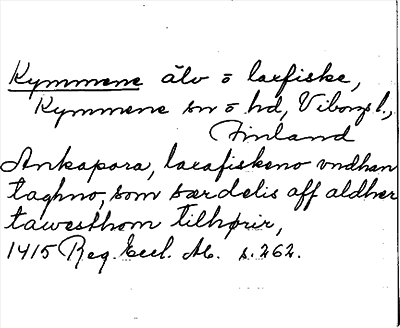 Kymmene älv o laxfiske,
Kymmene sn o hd, Viborgs l.,
Finland
Ankapora, laxafiskeno vndhan
taghno, som særdelis aff aldher
tawesthom tilhørir,
1415 Reg. Eccl. Ab. s. 262.